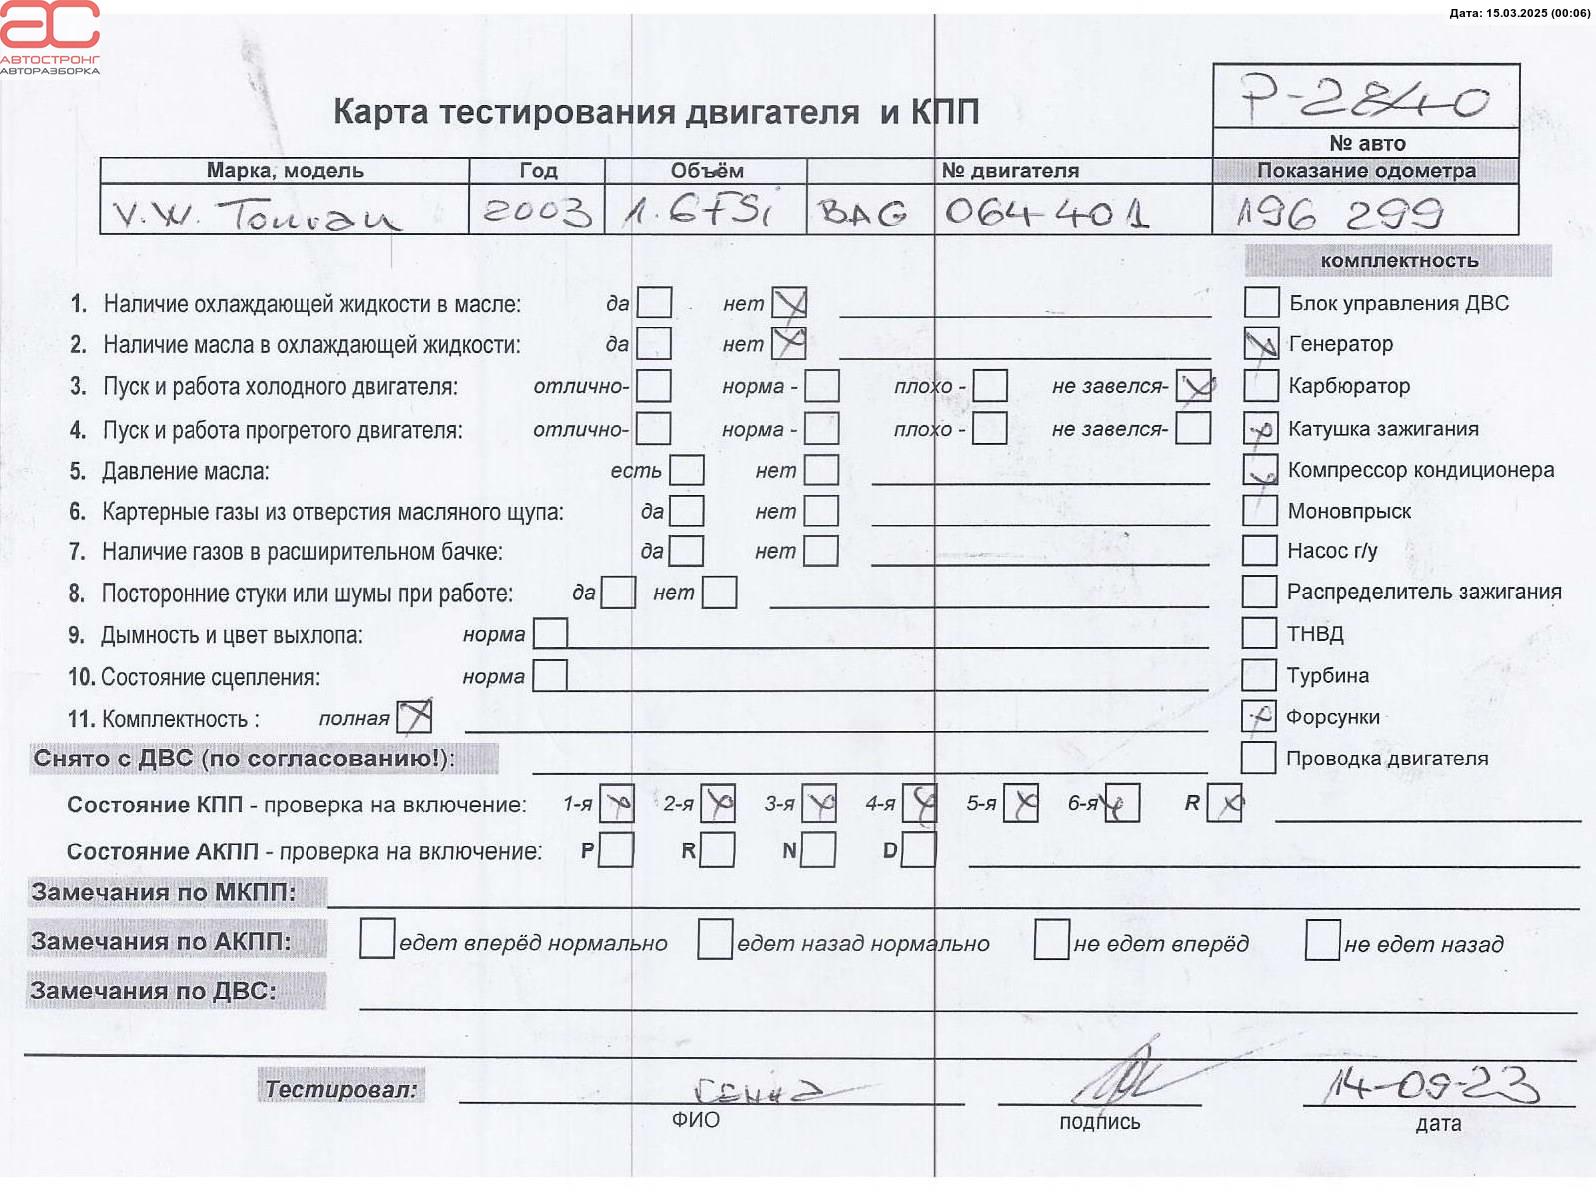 Дата: 15.03.2025 (00:06)
АВТОСТРОНГ
АВТОРАЗБОРКА
Карта тестирования двигателя и КПП
P-2840
№ авто
Марка, модель Год Объём № двигателя Показание одометра
V.W. Touran 2003 1.6FSi BAG 064401 196 299
комплектность
1. Наличие охлаждающей жидкости в масле: да нет Блок управления ДВС
2. Наличие масла в охлаждающей жидкости: да нет Генератор
3. Пуск и работа холодного двигателя: отлично- норма - плохо - не завелся- Карбюратор
4. Пуск и работа прогретого двигателя: отлично- норма - плохо - не завелся- Катушка зажигания
5. Давление масла: есть нет Компрессор кондиционера
6. Картерные газы из отверстия масляного щупа: да нет Моновпрыск
7. Наличие газов в расширительном бачке: да нет Насос г/у
8. Посторонние стуки или шумы при работе: да нет Распределитель зажигания
9. Дымность и цвет выхлопа: норма ТНВД
10. Состояние сцепления: норма Турбина
11. Комплектность : полная Форсунки
Снято с ДВС (по согласованию!): Проводка двигателя
Состояние КПП - проверка на включение: 1-я 2-я 3-я 4-я 5-я 6-я R
Состояние АКПП - проверка на включение: P R N D
Замечания по МКПП:
Замечания по АКПП: едет вперёд нормально едет назад нормально не едет вперёд не едет назад
Замечания по ДВС:
Тестировал: Генна 14-09-23
ФИО подпись дата